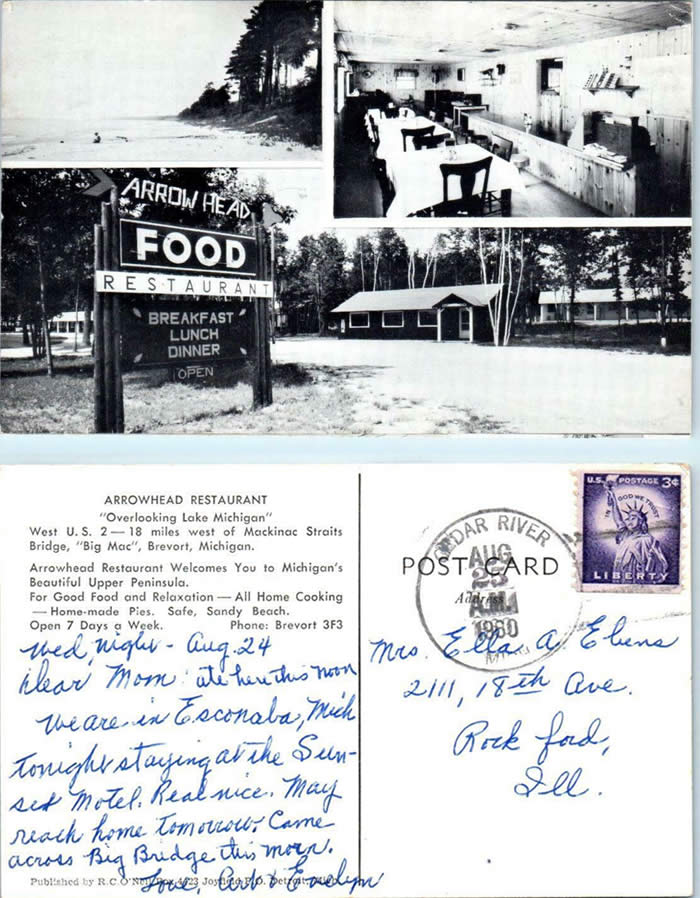 ARROW HEAD
FOOD
RESTAURANT
BREAKFAST
LUNCH
DINNER
OPEN
ARROWHEAD RESTAURANT
"Overlooking Lake Michigan"
West U.S. 2 — 18 miles west of Mackinac Straits
Bridge, "Big Mac", Brevort, Michigan.
Arrowhead Restaurant Welcomes You to Michigan's
Beautiful Upper Peninsula.
For Good Food and Relaxation — All Home Cooking
— Home-made Pies. Safe, Sandy Beach.
Open 7 Days a Week. Phone: Brevort 3F3
Wed, night - Aug. 24
Dear Mom: ate here this noon
We are in Esconaba, Mich
tonight staying at the Sun-
set Motel. Real nice. May
reach home tomorrow. Came
across Big Bridge this morn.
Love, Art & Evelyn
Published by R.C. O'Neil Box 4623 Joyfield P.O. Detroit, Mich.
POST CARD
Address
CEDAR RIVER
AUG
25
A.M.
1960
MICH
U.S. POSTAGE 3¢
IN GOD WE TRUST
LIBERTY
Mrs. Ella A. Ebens
2111, 18th Ave.
Rock ford,
Ill.